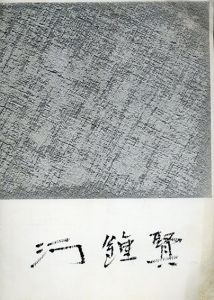 河鍾賢